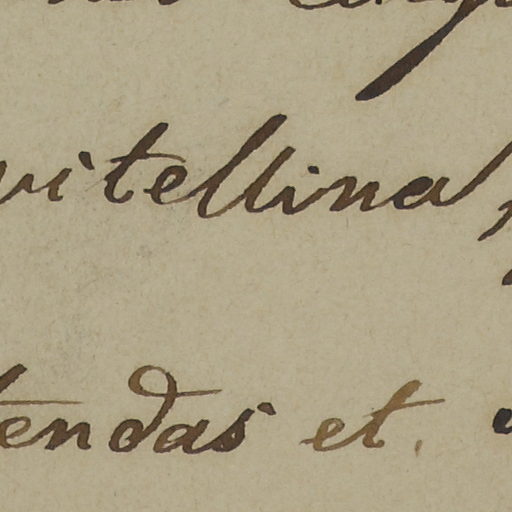 vitellina
tendas et